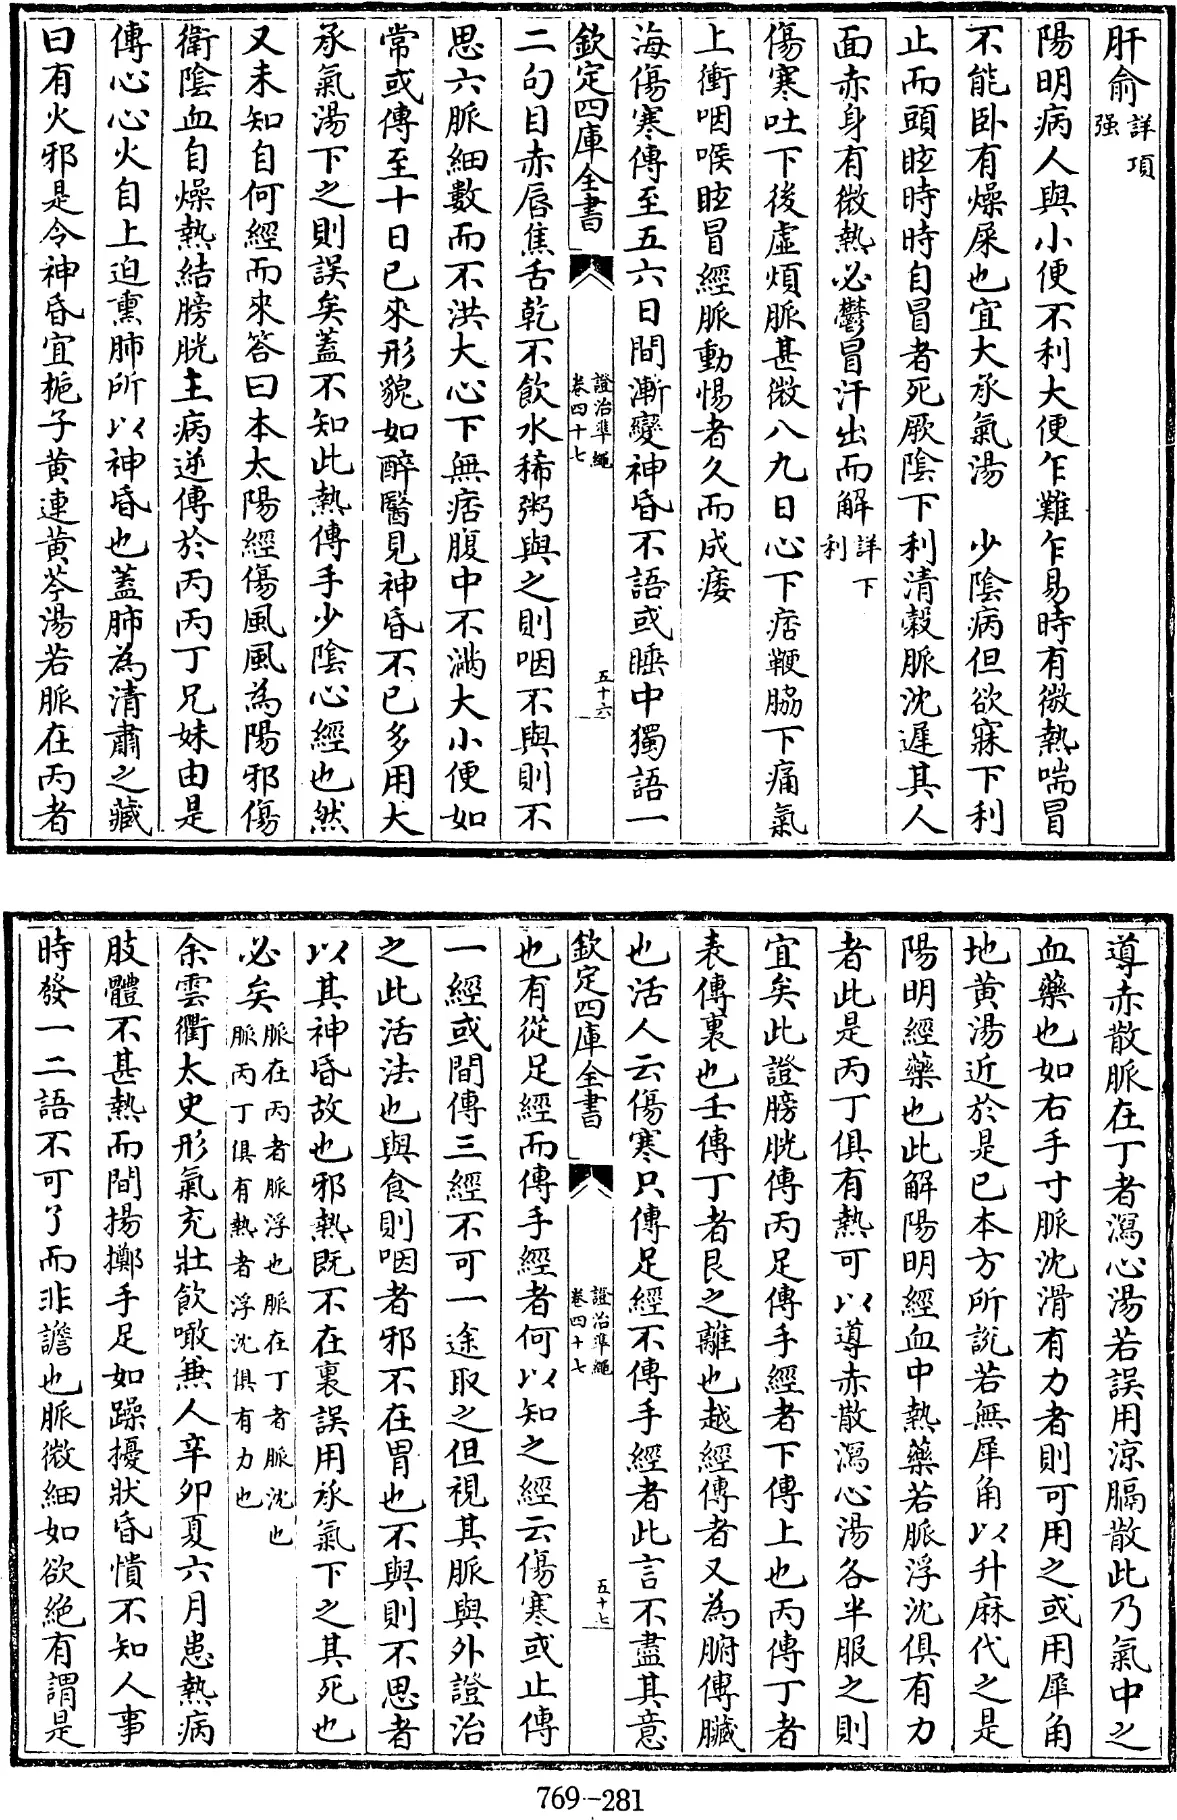 肝俞詳項强
陽明病人與小便不利大便乍難乍易時有微熱喘冒
不能卧有燥屎也宜大承氣湯　少陰病但欲寐下利
止而頭眩時時自冒者死厥陰下利清榖脈沈遲其人
面赤身有微熱必鬱冒汗出而解詳下利
傷寒吐下後虛煩脈甚微八九日心下痞鞕脇下痛氣
上衝咽喉眩冒經脈動惕者久而成痿
海傷寒傳至五六日間漸變神昏不語或睡中獨語一
欽定四庫全書　證治準繩卷四十七　五十六
二句目赤唇焦舌乾不飲水稀粥與之則咽不與則不
思六脈細數而不洪大心下無痞腹中不滿大小便如
常或傳至十日已來形貌如醉醫見神昏不已多用大
承氣湯下之則誤矣蓋不知此熱傳手少陰心經也然
又未知自何經而來答曰本太陽經傷風風為陽邪傷
衛陰血自燥熱結膀胱壬病逆傳於丙丙丁兄妹由是
傳心心火自上迫熏肺所以神昏也蓋肺為清肅之藏
曰有火邪是令神昏宜梔子黄連黄芩湯若脈在丙者
導赤散脈在丁者瀉心湯若誤用涼膈散此乃氣中之
血藥也如右手寸脈沈滑有力者則可用之或用犀角
地黄湯近於是已本方所説若無犀角以升麻代之是
陽明經藥也此解陽明經血中熱藥若脈浮沈俱有力
者此是丙丁俱有熱可以導赤散瀉心湯各半服之則
宜矣此證膀胱傳丙足傳手經者下傳上也丙傳丁者
表傳裏也壬傳丁者艮之離也越經傳者又為腑傳臟
也活人云傷寒只傳足經不傳手經者此言不盡其意
欽定四庫全書　證治準繩卷四十七　五十七
也有從足經而傳手經者何以知之經云傷寒或止傳
一經或間傳三經不可一途取之但視其脈與外證治
之此活法也與食則咽者邪不在胃也不與則不思者
以其神昏故也邪熱既不在裏誤用承氣下之其死也
必矣脈在丙者脈浮也脈在丁者脈沈也脈丙丁俱有熱者浮沈俱有力也
余雲衢太史形氣充壯飲噉兼人辛卯夏六月患熱病
肢體不甚熱而間揚擲手足如躁擾狀昏憒不知人事
時發一二語不可了而非譫也脈微細如欲絶有謂是
769-281